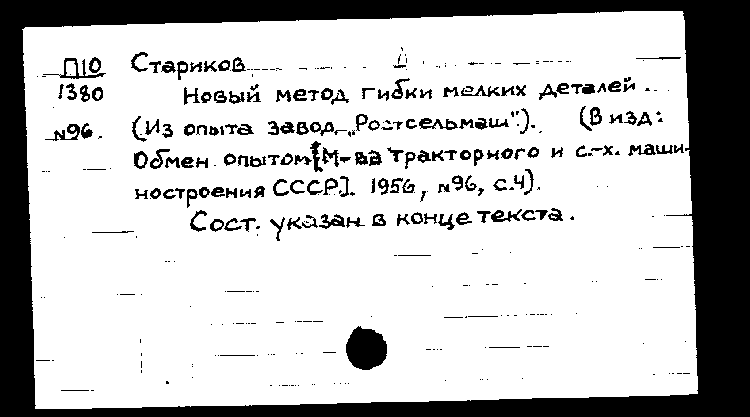 П10 Стариков Д
1380 Новый метод гибки мелких деталей.
№96. (Из опыта завод „Ростсельмаш"). (В изд:
Обмен опытом [М-ва тракторного и с.-х. маши-
ностроения СССР]. 1956, №96, с.4).
Сост. указан в конце текста.